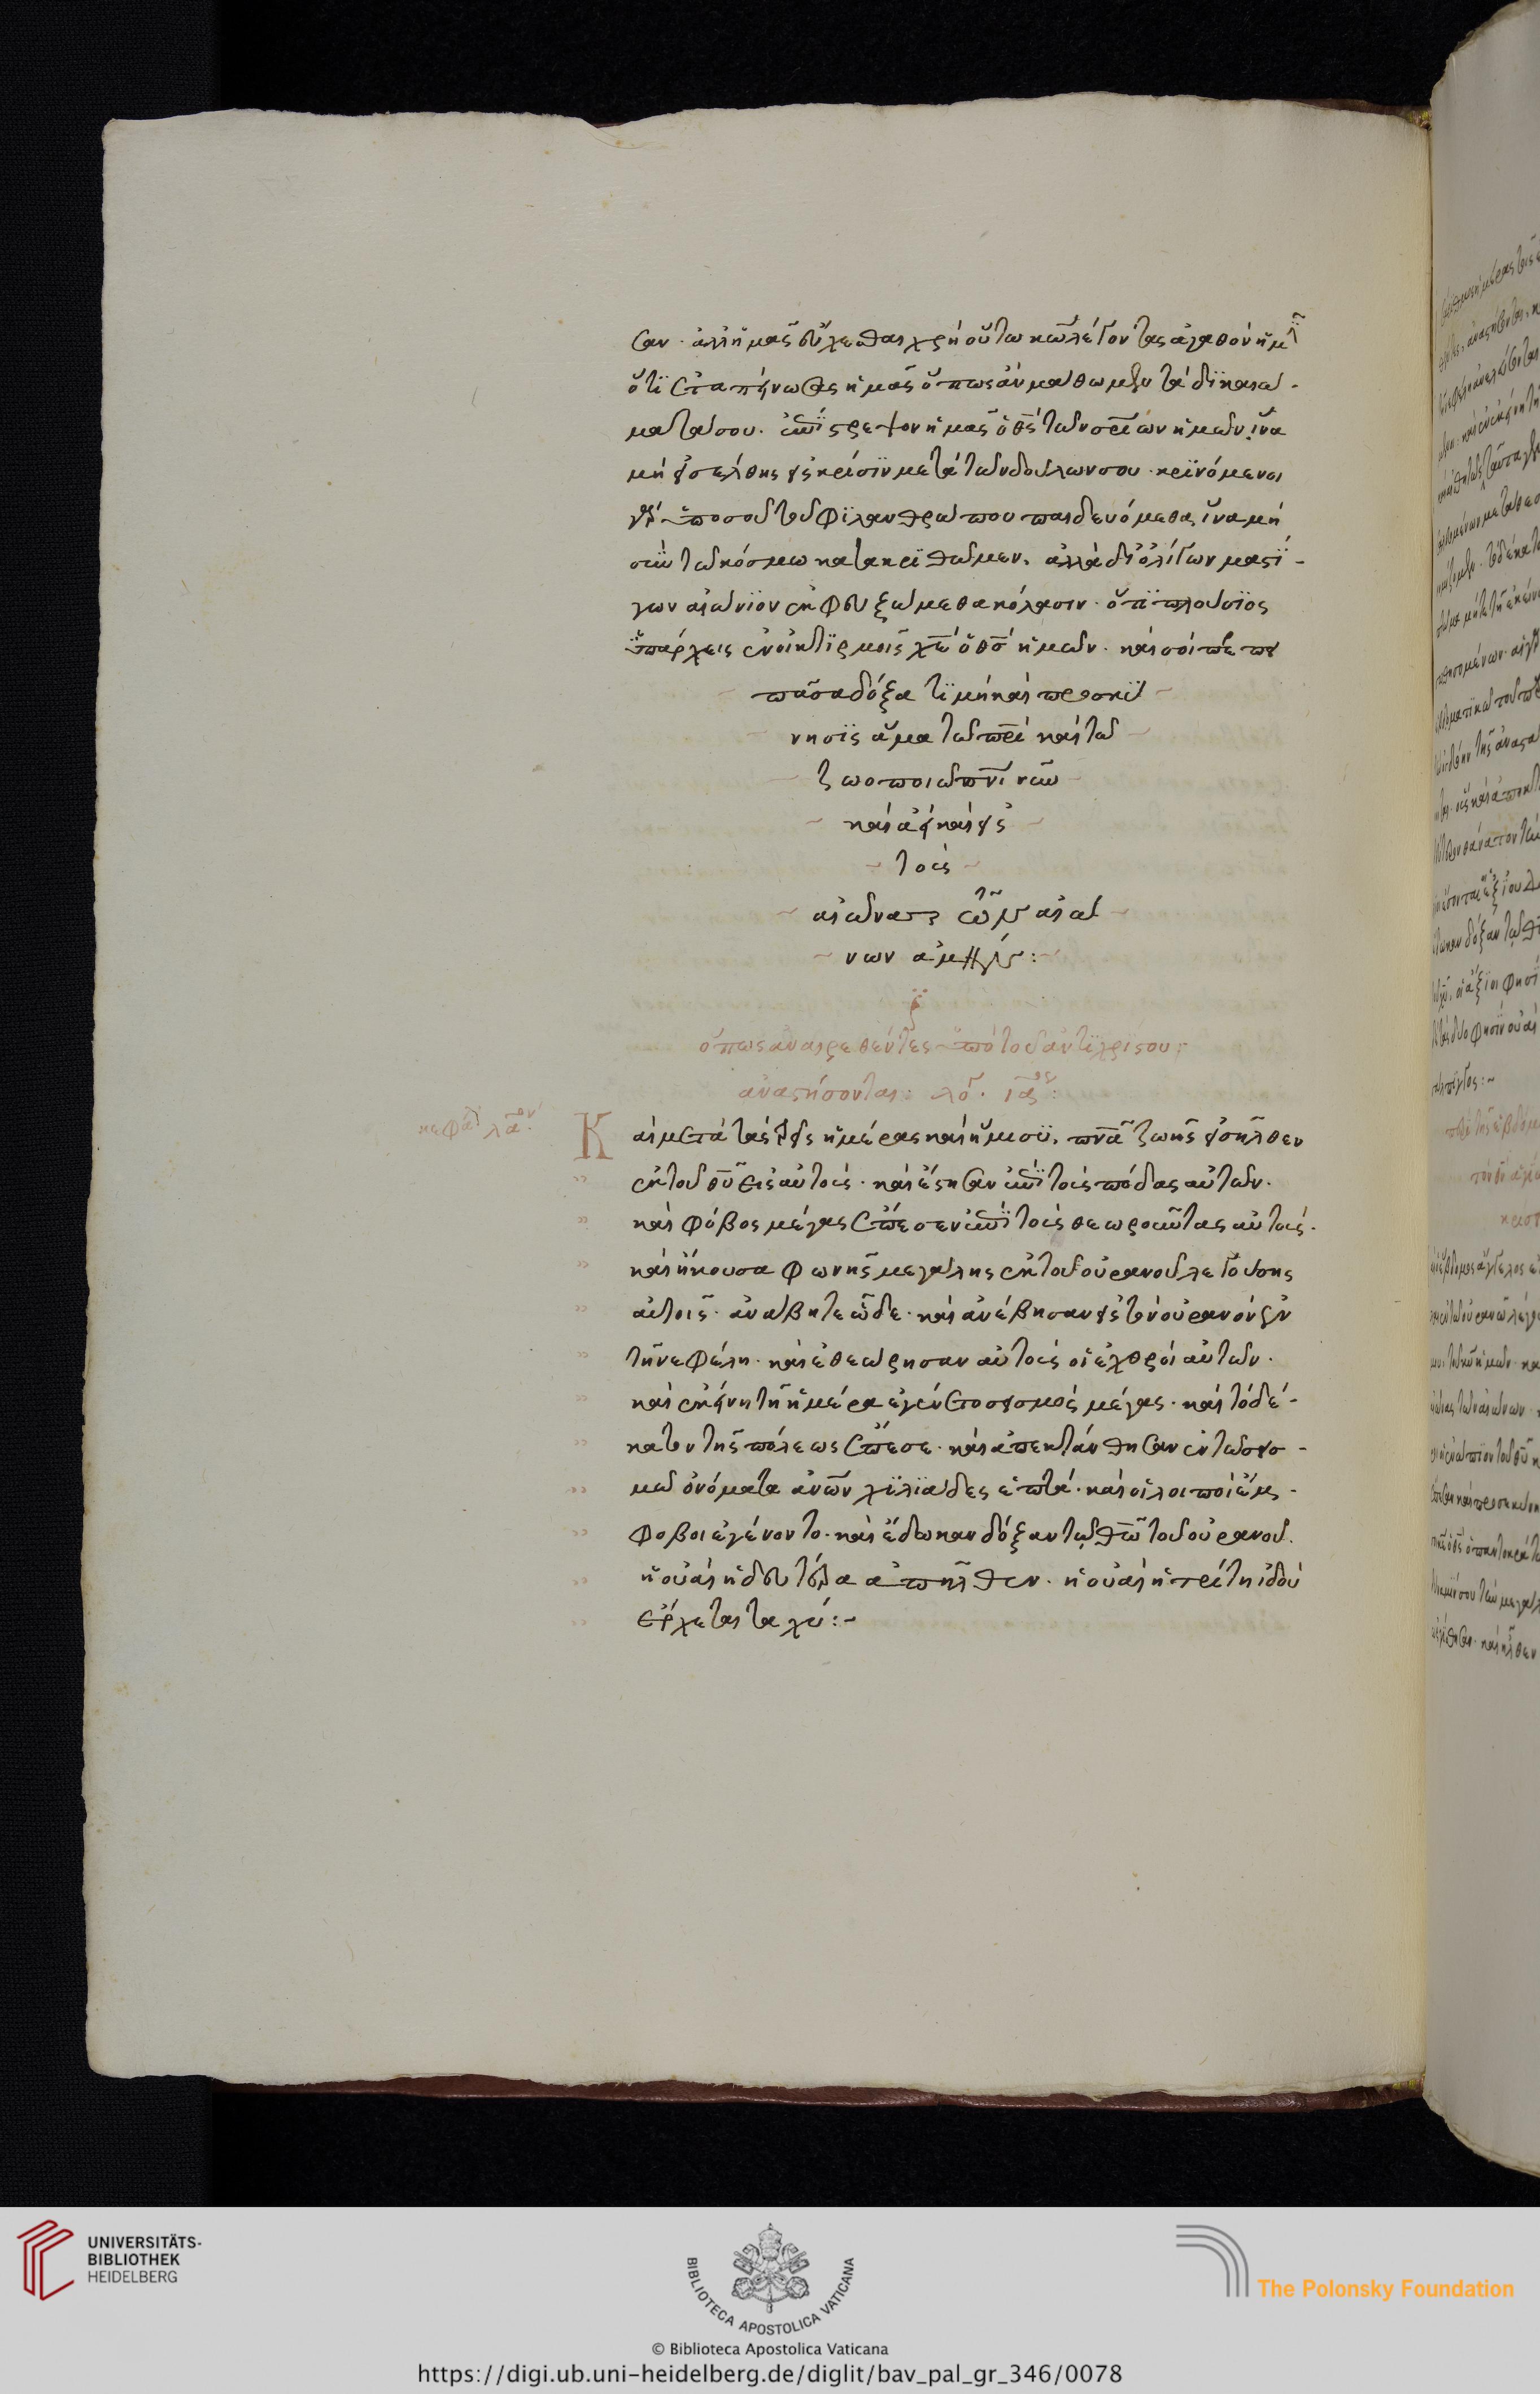 σαν· ἀλλ' ἡμᾶς εὔχεσθαι χρὴ οὕτω κ(ύρι)ῳ λέγοντας ἀγαθὸν ἡμῖν
ὅτϊ ἐταπείνωσας ἡμᾶς ὅπως ἂν μάθωμεν τὰ δϊκαιώ-
ματά σου. ἐπΐστρεψον ἡμᾶς ὁ θς τῶν σρϊῶν ἡμῶν ἵνα
μὴ εἰσέλθης εἰς κρίσϊν μετὰ τῶν δούλων σου· κρϊνόμενοι
γὰρ ὑπο σοῦ τοῦ φϊλανθρώπου παιδευόμεθα, ἵνα μὴ
σὺν τῶ κόσμω κατακρϊθῶμεν. ἀλλὰ δι' ὀλίγων μαστΐ-
γων αἰώνϊον ἐκφευξώμεθα κόλασιν· ὅτϊ πλούσϊος
ὑπάρχεις ἐν οἰκτϊρμοῖς χε ὁ θς ἡμῶν· καὶ σοὶ πρέπει
πᾶσα δόξα τϊμὴ καὶ προσκϋ
νησϊς ἅμα τῶ πρι καὶ τῶ
ζωοποιῶ πνι νῦν
καὶ ἀεὶ καὶ εἰς
τοὺς
αἰῶνας τῶν αἰώ
νων ἀμήν:
ὅπως ἀναιρεθέντες ὑπὸ τοῦ ἀντϊχρίστου
ἀναστήσονται: λό. ια ος:
κεφάλ λα ον
Καὶ μετὰ τὰς τρεῖς ἡμέρας καὶ ἥμισϋ, πνα ζωῆς εἰσῆλθεν
ἐκ τοῦ θυ εἰς αὐτούς· καὶ ἔστησαν ἐπΐ τοὺς πόδας αὐτῶν.
καὶ φόβος μέγας ἔπεσεν ἐπΐ τοὺς θεωροῦντας αὐτούς.
καὶ ἤκουσα φωνῆς μεγάλης ἐκ τοῦ οὐρανοῦ λεγούσης
αὐτοῖς· ἀνάβητε ὧδε· καὶ ἀνέβησαν εἰς τὸν οὐρανὸν ἐν
τῆ νεφέλη· καὶ ἐθεώρησαν αὐτοὺς οἱ ἐχθροὶ αὐτῶν.
καὶ ἐκείνη τῆ ἡμέρα ἐγένετο σεισμὸς μέγας· καὶ τὸ δέ-
κατον τῆς πόλεως ἔπεσε· καὶ ἀπεκτάνθησαν ἐν τῶ σεισ-
μῶ ὀνόματα ἀνων χϊλϊάδες ἑπτά· καὶ οἱ λοιποὶ ἔμ-
φοβοι ἐγένοντο· καὶ ἔδωκαν δόξαν τῶ θω τοῦ οὐρανοῦ.
ἡ οὐαὶ ἡ δευτέρα ἀπῆλθεν· ἡ οὐαὶ ἡ τρίτη ἰδοὺ
ἔρχεται ταχύ:~
UNIVERSITÄTS-
BIBLIOTHEK
HEIDELBERG
BIBLIOTECA APOSTOLICA VATICANA
The Polonsky Foundation
© Biblioteca Apostolica Vaticana
https://digi.ub.uni-heidelberg.de/diglit/bav_pal_gr_346/0078